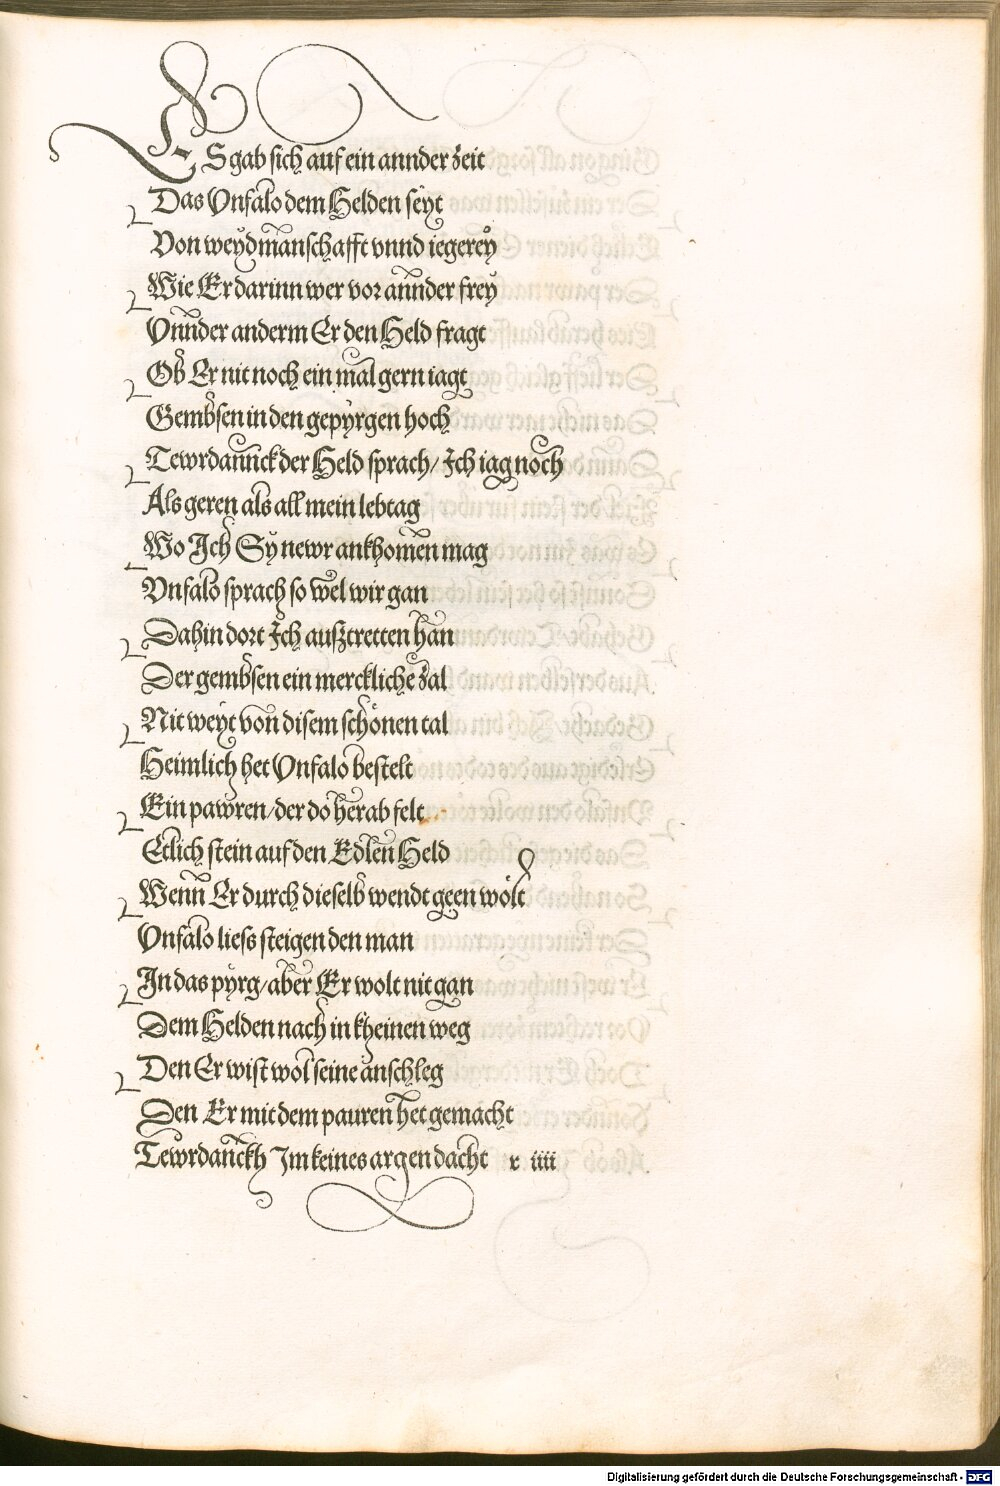 ES gab sich auf ein annder zeit
Das Vnfalo dem Helden seyt
Von weydmanschafft vnnd iegerey
Wie Er darinn wer vor annder frey
Vnnder anderm Er den Held fragt
Ob Er nit noch ein mal gern iagt
Gembsen in den gepyrgen hoch
Tewrdannck der Held sprach / Ich iag noch
Als geren als all mein lebtag
Wo Ich Sy newr ankhomen mag
Vnfalo sprach so wel wir gan
Dahin dort Ich ausztretten han
Der gembsen ein merckliche zal
Nit weyt von disem schönen tal
Heimlich het Vnfalo bestelt
Ein pawren / der do herab felt
Etlich stein auf den Edlen Held
Wenn Er durch dieselb wendt geen wolt
Vnfalo liess steigen den man
In das pyrg / aber Er wolt nit gan
Dem Helden nach in kheinen weg
Den Er wist wol seine anschleg
Den Er mit dem pauren het gemacht
Tewrdanckh Im keines argen dacht r iiii
Digitalisierung gefördert durch die Deutsche Forschungsgemeinschaft - DFG